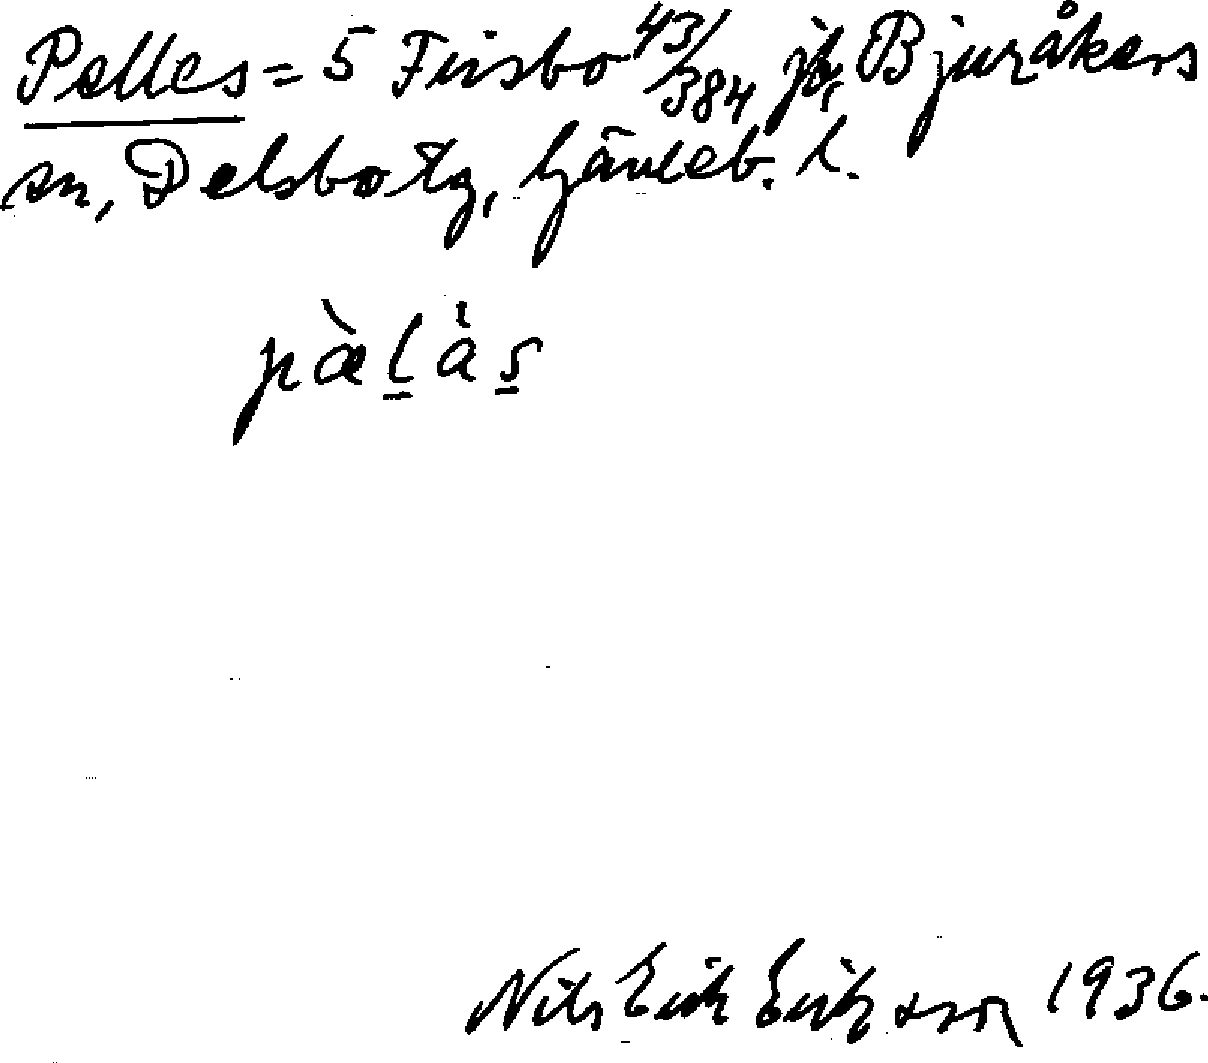 Pelles = 5 Fursbo 43/384 jb, Bjuråkers
sn, Delsbo tg, Gävleb. l.
pæ̀l̠ȧs̠
Nils Erik Eriksson 1936.